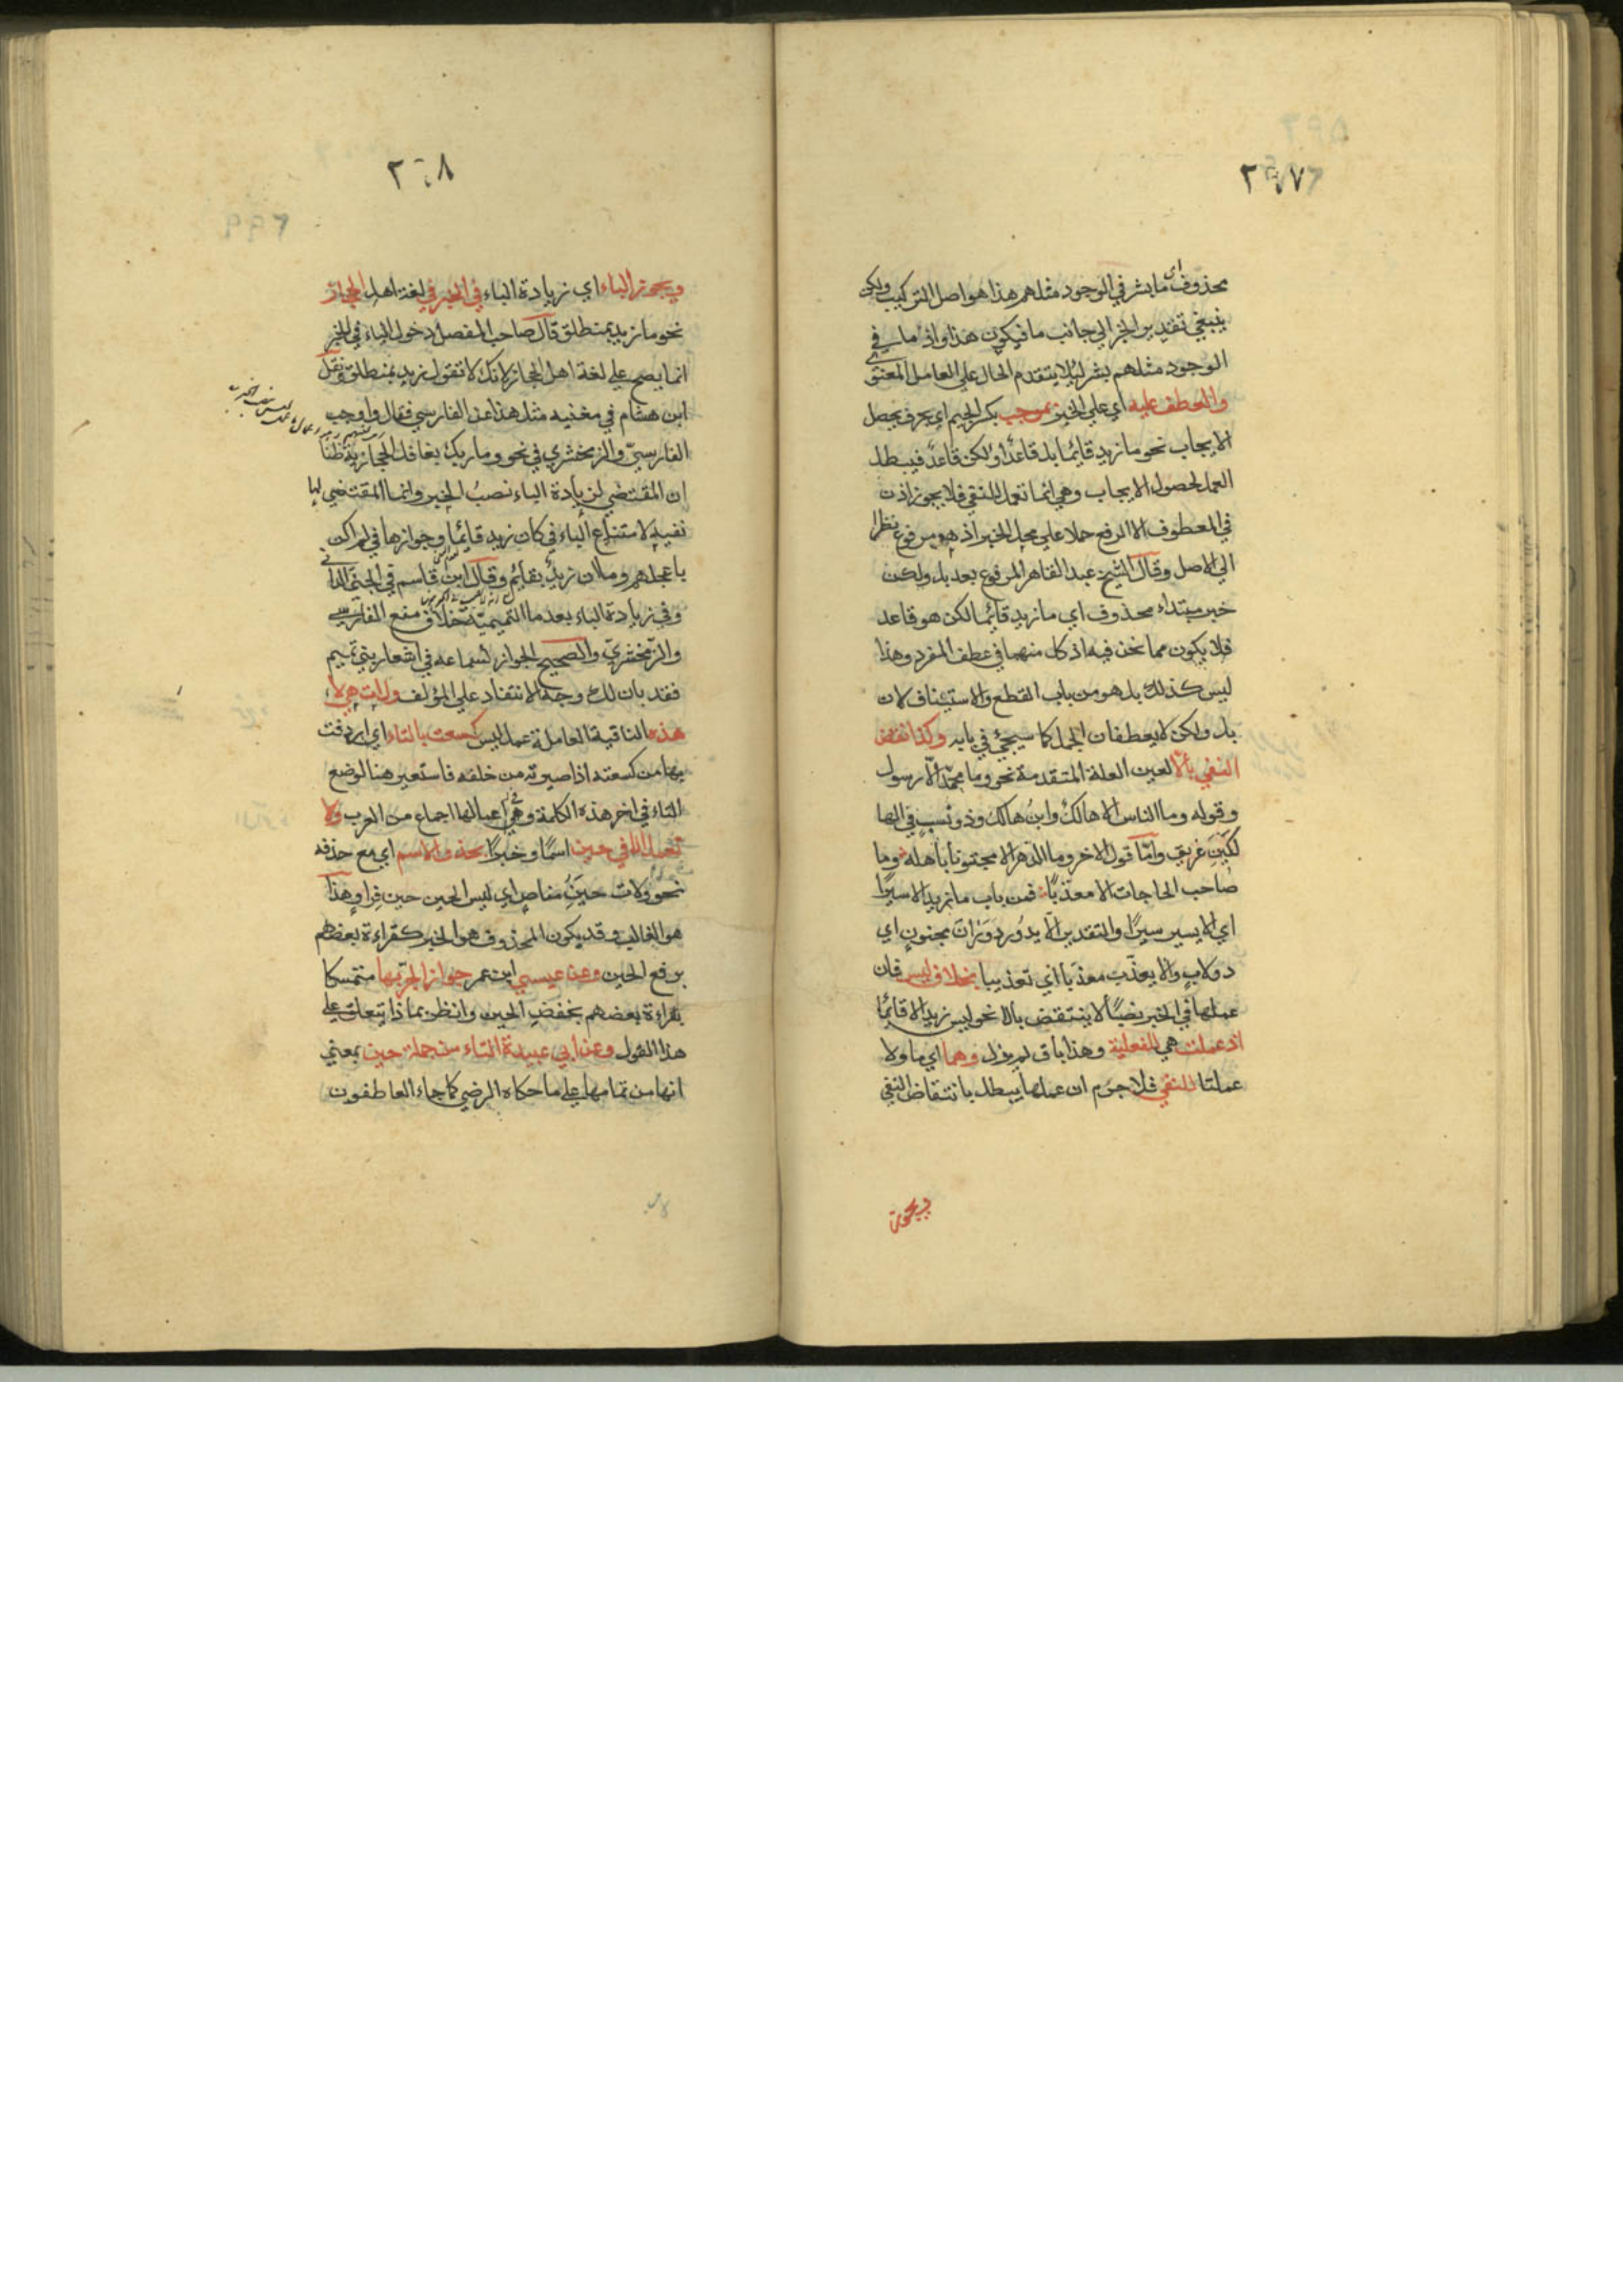 ٢٦٧
محذوف اي ما بشر في الوجود مثلهم هذا هو اصل التركيب ولكن
ينبغي تقدير الخبر الي جانب ما فيكون هذا واذ ما في
الوجود مثلهم بشر ليلا يتقدم الحال علي العامل المعنوي
والعطف عليه اي علي الخبر بموجب بكسر الجيم اي بحرف يحصل
الايجاب نحو ما زيد قايما بل قاعد او لكن قاعد فيبطل
العمل لحصول الايجاب وهي انما تعمل للنفي فلا يجوز اذن
في المعطوف الا الرفع حملا علي محل الخبر اذ هو مرفوع نظرا
الي الاصل وقال الشيخ عبد القاهر المرفوع بعد بل ولكن
خبر مبتداء محذوف اي ما زيد قايما لكن هو قاعد
فلا يكون مما نحن فيه اذ كل منهما في عطف المفرد وهذا
ليس كذلك بل هو من باب القطع والاستيناف لان
بل ولكن لا يعطفان الجمل كما سيجئ في بابه وكذا نقض
النفي بالا لعين العلة المتقدمة نحو وما محمد الا رسول
وقوله وما الناس الا هالك وابن هالك وذو نسب في الهالكين
غريق واما قول الاخر وما الدهر الا مجنونا باهله وما
صاحب الحاجات الا معذبا فمن باب ما زيد الا سيرا
اي الا يسير سيرا والتقدير الا يدور دوران مجنون اي
دولاب والا يعذب معذبا اي تعذيبا بخلاف ليس فان
عملها في الخبر نصبا لا ينتقض بالا نحو ليس زيد الا قايما
اذ عملت هي للفعلية وهذا باق لم يزل وهما اي ما ولا
عملتا للنفي فلا جرم ان عملها يبطل بانتقاض النفي
ويجوز
٢٦٨
ويجوز الباء اي زيادة الباء في الخبر في لغة اهل الحجاز
نحو ما زيد بمنطلق قال صاحب المفصل دخول الباء في الخبر
انما يصح علي لغة اهل الحجاز لانك لا تقول زيد بمنطلق ونقل
ابن هشام في مغنيه مثل هذا عن الفارسي فقال واوجب
الفارسي والزمخشري في نحو وما ربك بغافل الحجازية ظنا
ان المقتضي لزيادة الباء نصب الخبر وانما المقتضي لها
نفيه لامتناع الباء في كان زيد قايما وجوازها في لم اكن
باعجلهم وما ان زيد بقايم وقال ابن قاسم في الجني الداني
وفي زيادة الباء بعد ما التميمية خلاف منع الفارسي
والزمخشري والصحيح الجواز لسماعه في اشعار بني تميم
فقد بان لك وجه الانتقاد علي المؤلف ولات هي لا
هذه النافية العاملة عمل ليس كسعت بالتاء اي اردفت
بها من كسعته اذا صيرته من خلفه فاستعير هنا لوضع
التاء في اخر هذه الكلمة وفي اعمالها اجماع من العرب ولا
تعمل الا في حين اسما وخبرا بحذف الاسم اي مع حذفه
نحو ولات حين مناص اي ليس الحين حين فرار وهذا
هو الغالب وقد يكون المحذوف هو الخبر كقراءة بعضهم
برفع الحين وعن عيسي ابن عمر جواز الجر بها متمسكا
بقراءة بعضهم بخفض الحين وانظر بماذا يتعلق علي
هذا القول وعن ابي عبيدة التاء من جملة حين بمعني
انها من تمامها علي ما حكاه الرضي كما جاء العاطفون